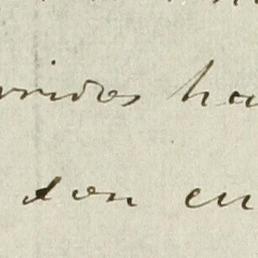 rridos ha
don en